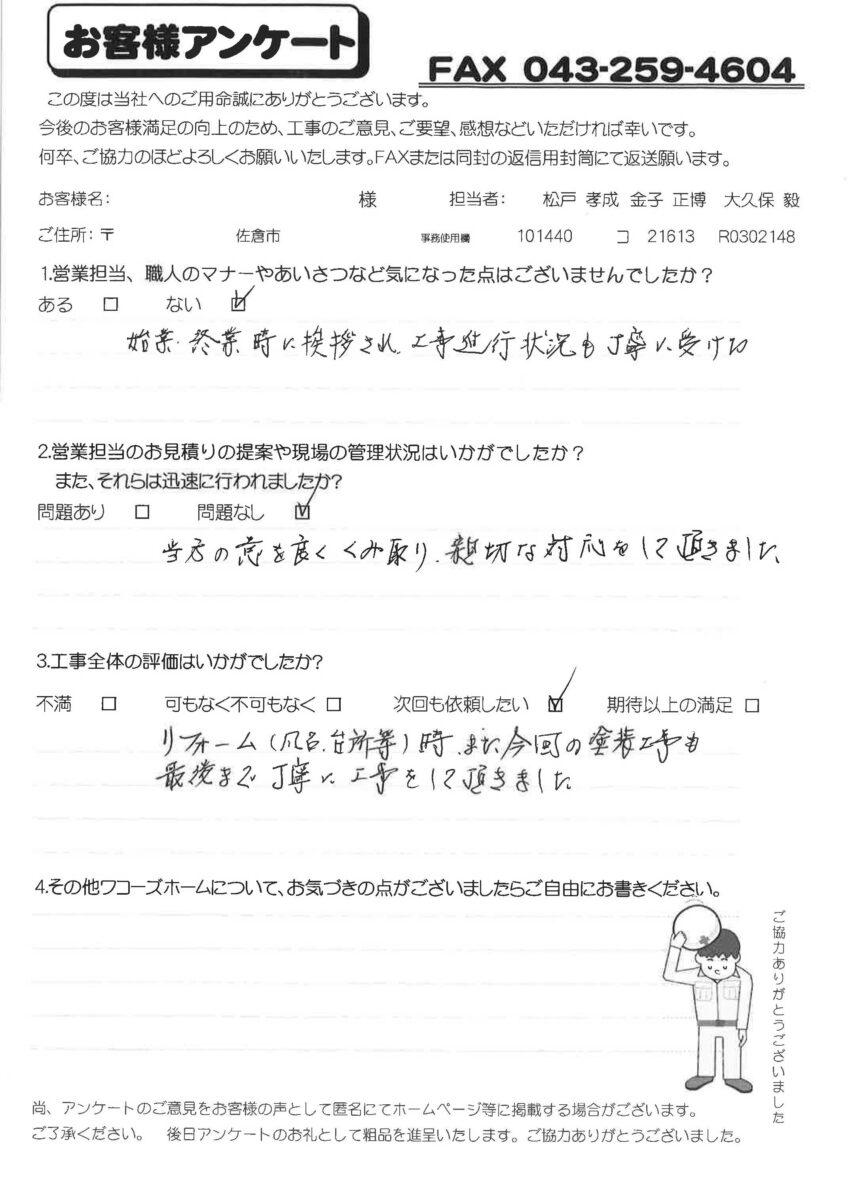 お客様アンケート
FAX 043-259-4604
この度は当社へのご用命誠にありがとうございます。
今後のお客様満足の向上のため、工事のご意見、ご要望、感想などいただければ幸いです。
何卒、ご協力のほどよろしくお願いいたします。FAXまたは同封の返信用封筒にて返送願います。
お客様名: 様 担当者: 松戸 孝成 金子 正博 大久保 毅
ご住所:〒 佐倉市 事務使用欄 101440 コ 21613 R0302148
1.営業担当、職人のマナーやあいさつなど気になった点はございませんでしたか?
ある □ ない ☑
始業・終業時に挨拶され、工事進行状況も丁寧に受けた
2.営業担当のお見積りの提案や現場の管理状況はいかがでしたか?
また、それらは迅速に行われましたか?
問題あり □ 問題なし ☑
当方の意を良くくみ取り、親切な対応をして頂きました
3.工事全体の評価はいかがでしたか?
不満 □ 可もなく不可もなく □ 次回も依頼したい ☑ 期待以上の満足 □
リフォーム(風呂、台所等)時、また今回の塗装工事も
最後まで丁寧に工事をして頂きました
4.その他ワコーズホームについて、お気づきの点がございましたらご自由にお書きください。
ご協力ありがとうございました
尚、アンケートのご意見をお客様の声として匿名にてホームページ等に掲載する場合がございます。
ご了承ください。 後日アンケートのお礼として粗品を進呈いたします。ご協力ありがとうございました。